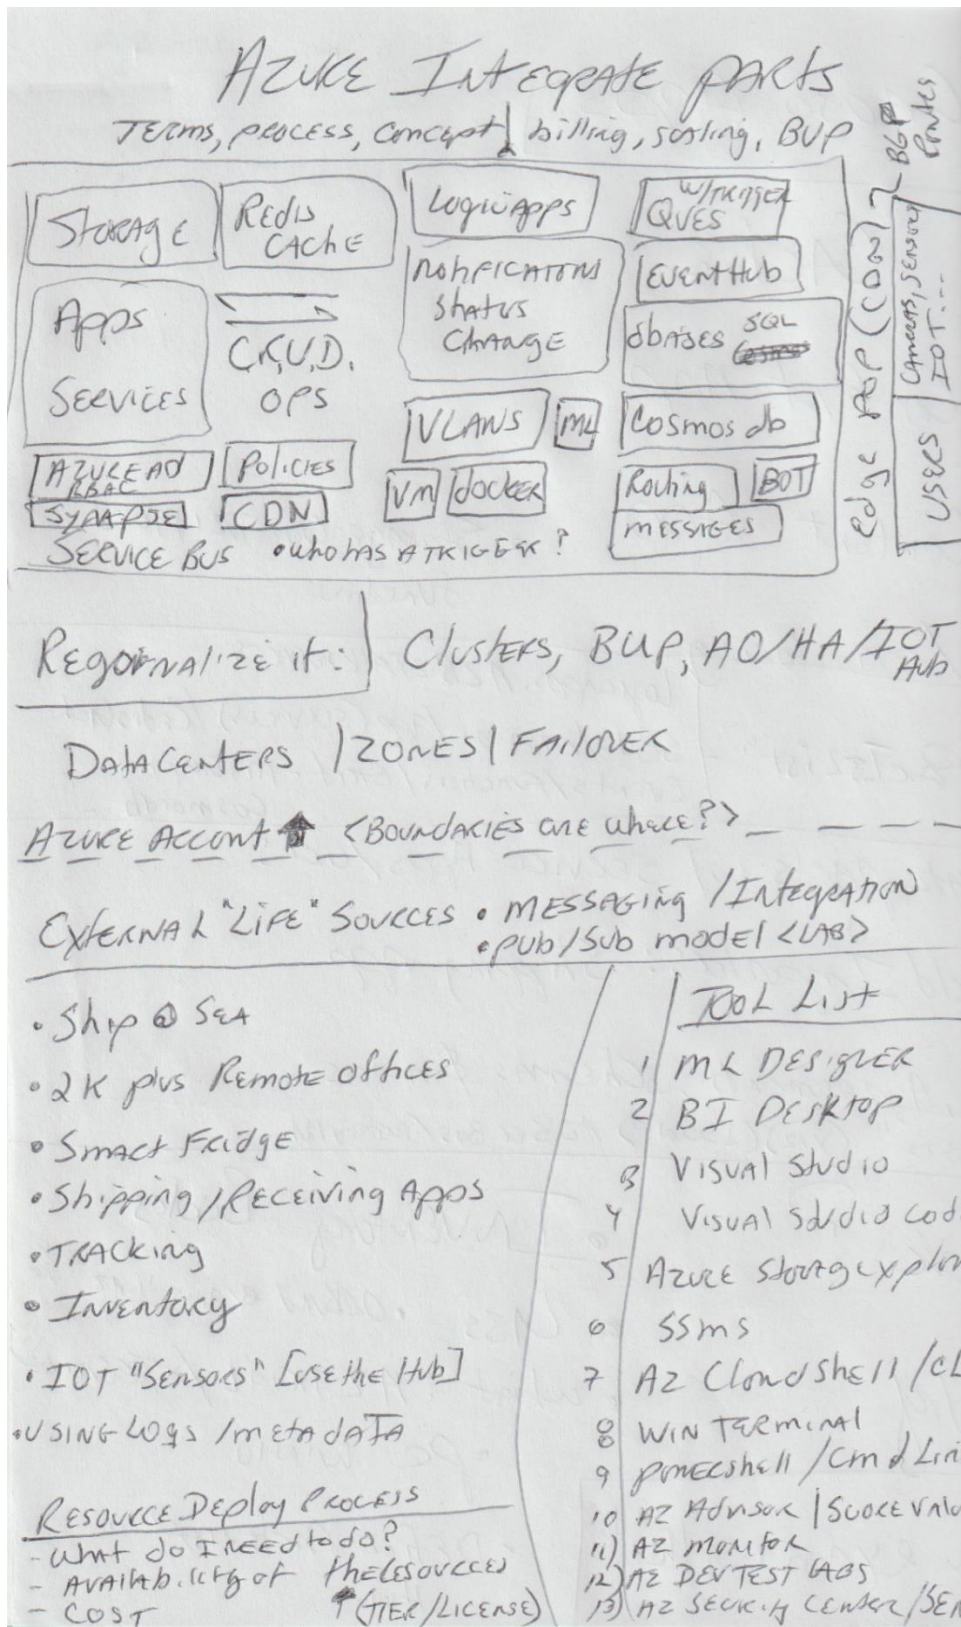 Azure Integrate parts
Terms, process, concept, billing, scaling, BUP
Storage
Redis
Cache
Logic Apps
W/Trigger
Ques
Event Hub
Notifications
Status
Change
dbases SQL
Apps
Services
C.R.U.D.
OPS
VLANS
ML
Cosmos db
Azure AD
RBAC
Policies
VM
docker
Routing
BOT
Synapse
CDN
Messages
Service Bus • who has a trigger?
edge PoP (CDN) BGP
Routes
Cameras, Sensory
IOT....
Users
Regoinalize it: Clusters, BUP, AO/HA/IOT
Hub
DataCenters /Zones/ Failover
Azure Accont <Boundaries are where?>
External "Life" Sources • Messaging /Integration
• pub/sub model <LAB>
• Ship @ Sea
• 2K plus Remote offices
• Smart Fridge
• Shipping/Receiving Apps
• Tracking
• Inventory
• IOT "Sensors" [use the Hub]
• Using Logs /metadata
Resource Deploy Process
- What do I need to do?
- Availability of the resources
- Cost (Tier/License)
Tool List
1 ML Designer
2 BI Desktop
3 Visual Studio
4 Visual Studio Cod
5 Azure Storage explor
6 SSMS
7 AZ Cloud Shell /CL
8 Win Terminal
9 Powershell /Cmd Lin
10 AZ Advisor |Score Valu
11) AZ Monitor
12) AZ DevTest Labs
13) AZ Security Center/Sen